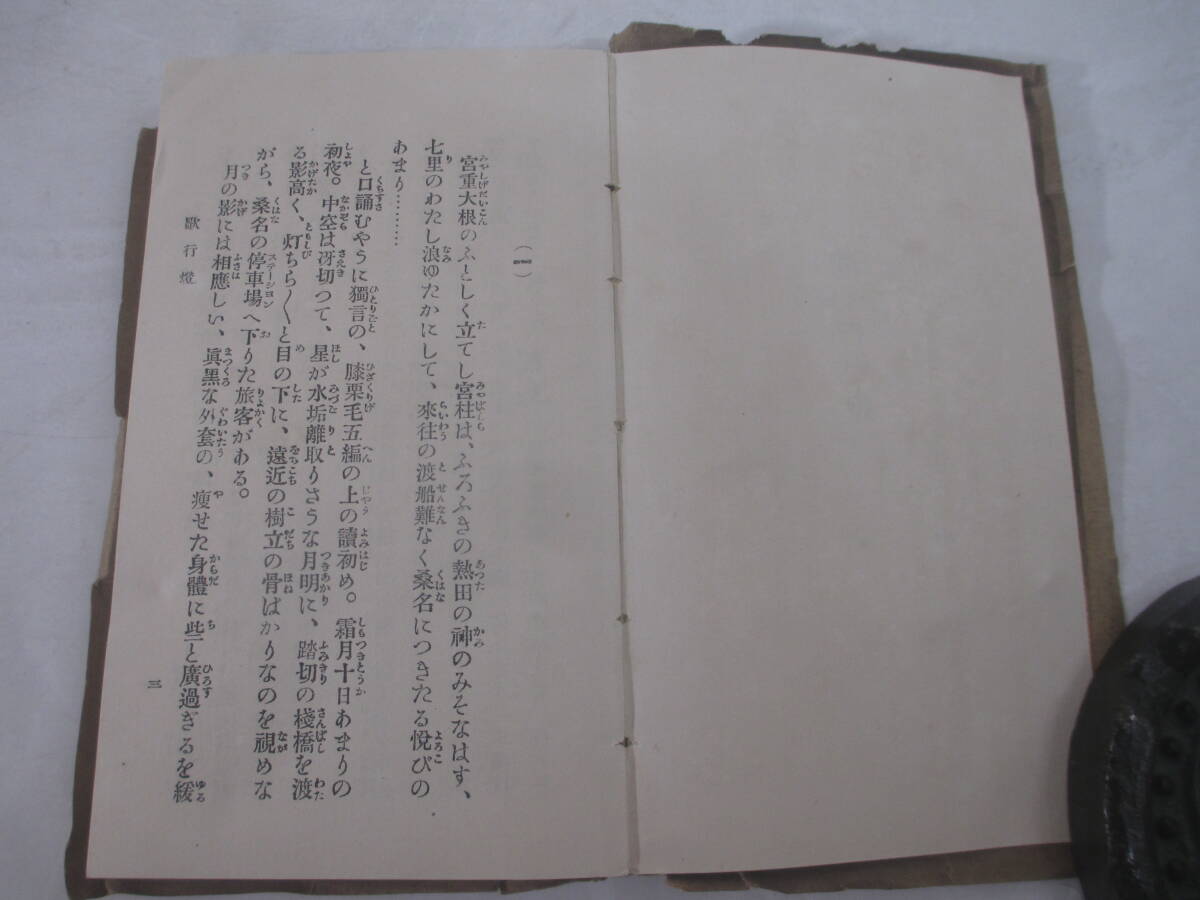 (一)
宮重大根のふとしく立てし宮柱は、ふろふきの熱田の神のみそなはす、
七里のわたし浪ゆたかにして、來往の渡船難なく桑名につきたる悅びの
あまり………
と口誦むやうに獨言の、膝栗毛五編の上の讀初め。霜月十日あまりの
初夜。中空は冴切つて、星が水垢離取りさうな月明に、踏切の棧橋を渡
る影高く、灯ちら〱と目の下に、遠近の樹立の骨ばかりなのを視めな
がら、桑名の停車場へ下りた旅客がある。
月の影には相應しい、眞黑な外套の、瘦せた身體に些と廣過ぎるを緩
歌行燈
三